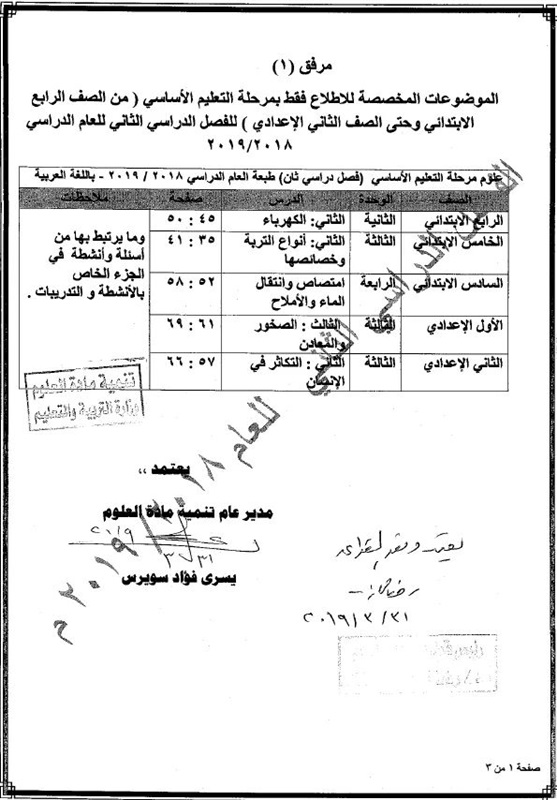 مرفق (١)
الموضوعات المخصصة للاطلاع فقط بمرحلة التعليم الأساسي ( من الصف الرابع
الابتدائي وحتى الصف الثاني الإعدادي ) للفصل الدراسي الثاني للعام الدراسي
٢٠١٩/٢٠١٨
علوم مرحلة التعليم الأساسي (فصل دراسي ثان) طبعة العام الدراسي ٢٠١٨ / ٢٠١٩ - باللغة العربية
الصف الوحدة الدرس صفحة ملاحظات
الرابع الابتدائي الثانية الثاني: الكهرباء ٤٥ : ٥٠
الخامس الابتدائي الثالثة الثاني: أنواع التربة وخصائصها ٣٥ : ٤١
السادس الابتدائي الرابعة امتصاص وانتقال الماء والأملاح ٥٢ : ٥٨
الأول الإعدادي الثالثة الثالث : الصخور والمعادن ٦١ : ٦٩
الثاني الإعدادي الثالثة الثاني : التكاثر في الإنسان ٥٧ : ٦٦
وما يرتبط بها من
أسئلة وأنشطة في
الجزء الخاص
بالأنشطة و التدريبات .
الدراسي الثاني للعام ٢٠١٨ / ٢٠١٩ م
تنمية مادة العلوم
وزارة التربية والتعليم
يعتمد ،،
مدير عام تنمية مادة العلوم
يسرى فؤاد سويرس
٢٠١٩/٣/٣١
صفحة ١ من ٣